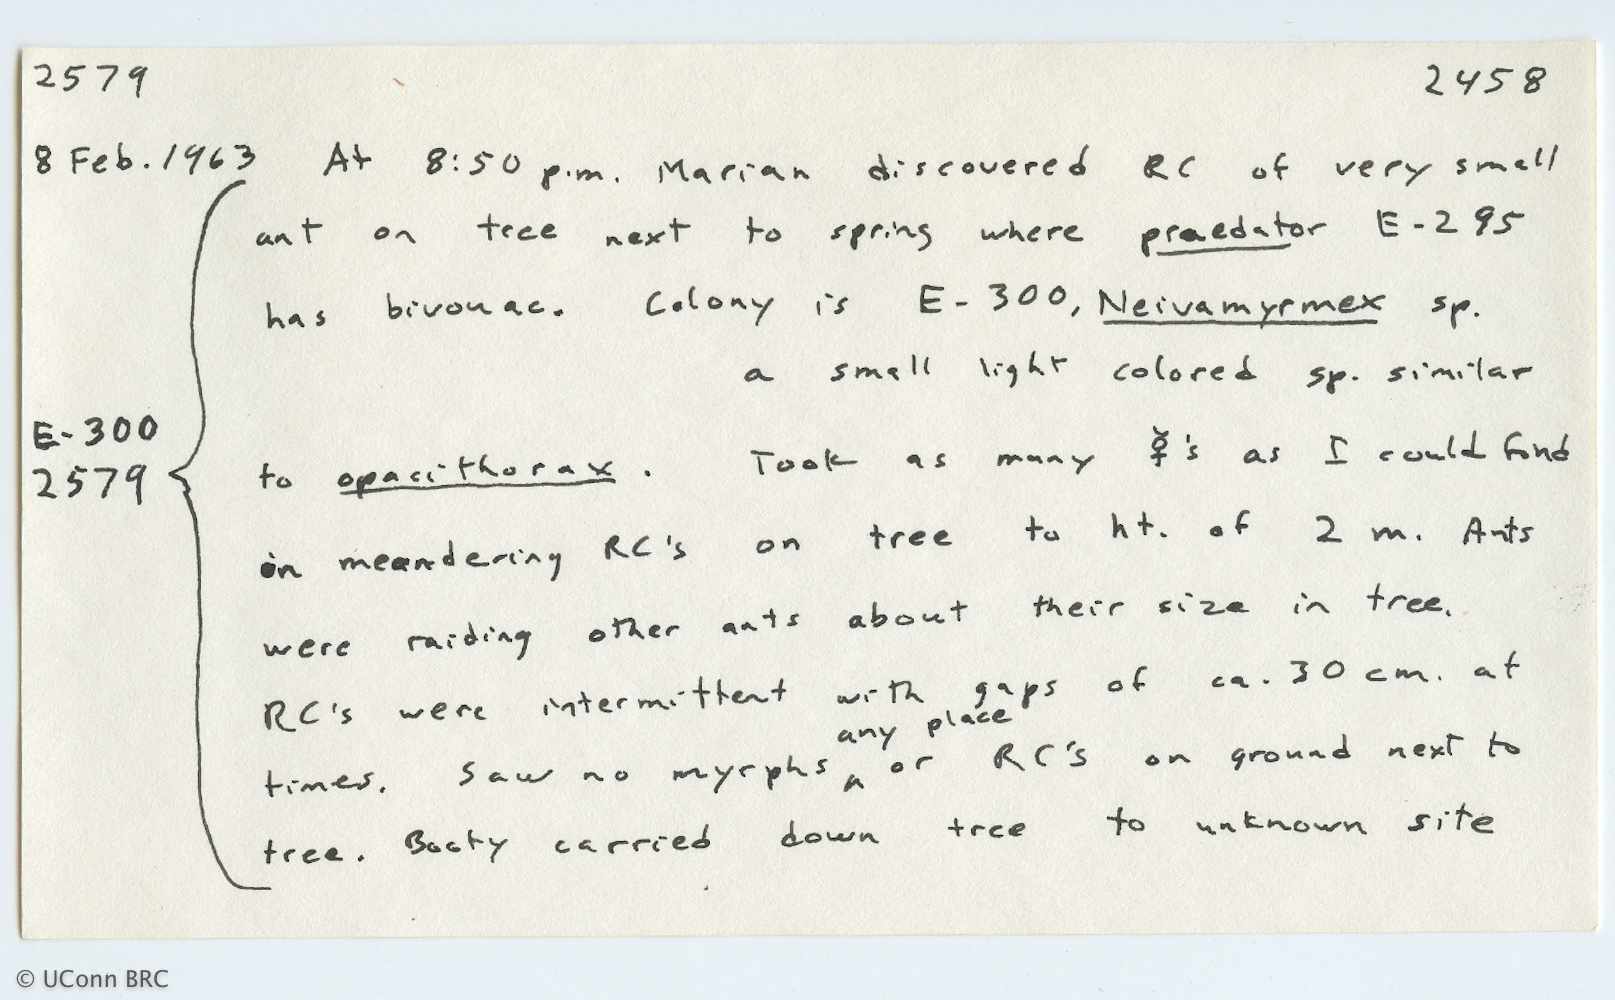 2579 2458
8 Feb. 1963 At 8:50 p.m. Marian discovered RC of very small
ant on tree next to spring where praedator E-295
has bivouac. Colony is E-300, Neivamyrmex sp.
a small light colored sp. similar
E-300
2579
to opacithorax. Took as many ☿'s as I could find
in meandering RC's on tree to ht. of 2 m. Ants
were raiding other ants about their size in tree.
RC's were intermittent with gaps of ca. 30 cm. at
any place
times. Saw no myrphs ^ or RC's on ground next to
tree. Booty carried down tree to unknown site
© UConn BRC